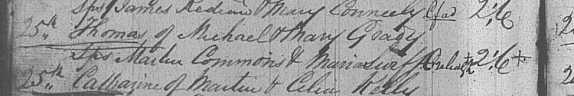 Sps James Redin & Mary Conneely 2/6
25th Thomas of Michael & Mary Grady
Sps Martin Commons & 2/6 +
25th Catharine of Martin & Celia Kelly